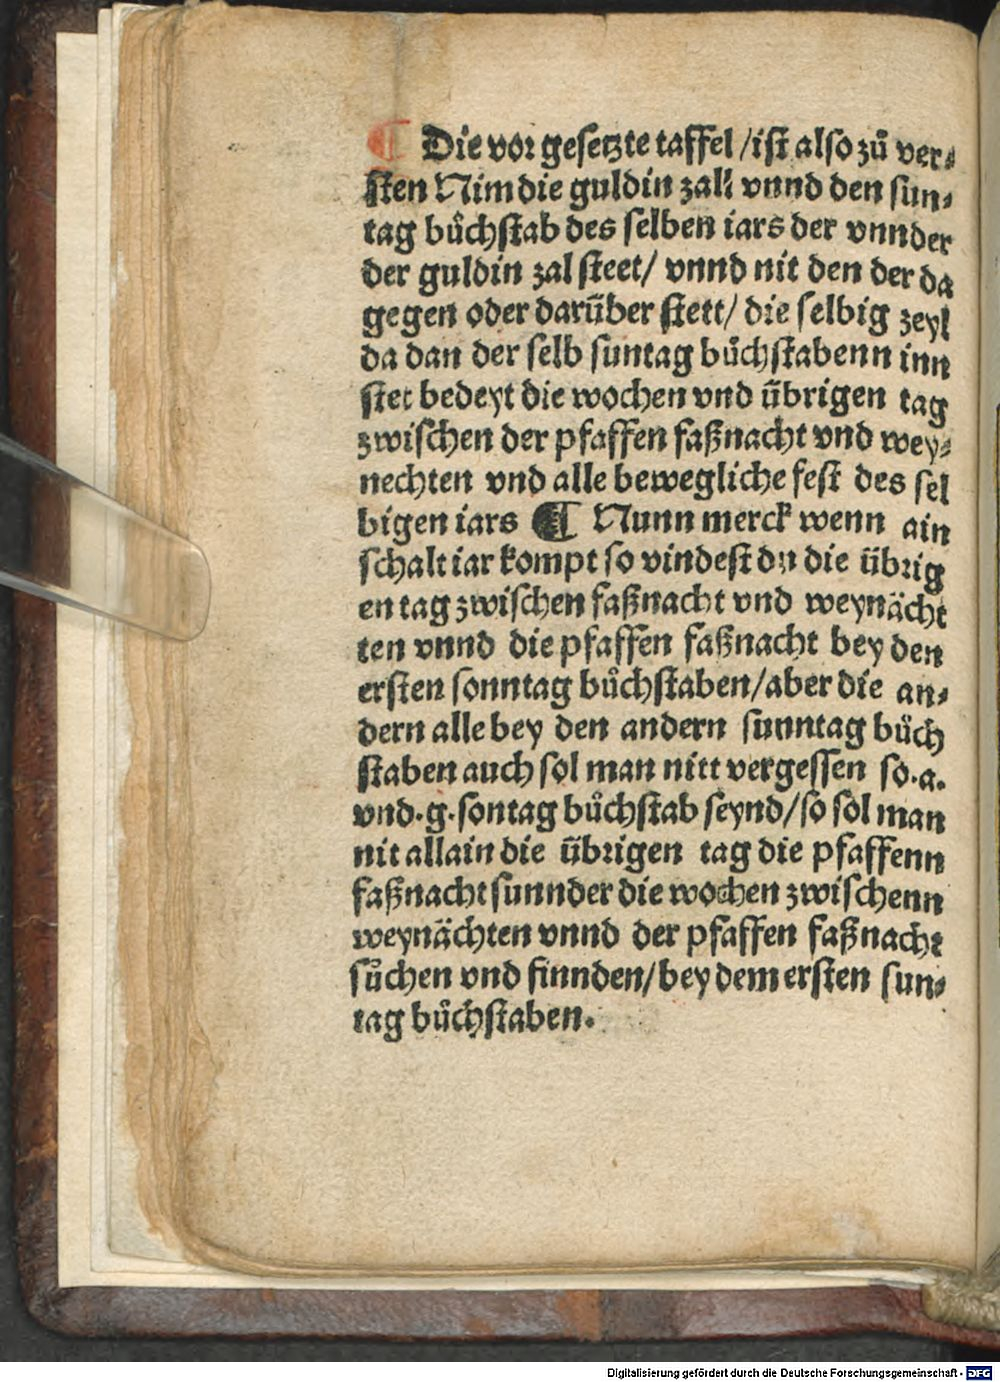 ¶ Die vor gesetzte taffel /ist also zů ver⸗
sten Nim die guldin zall vnnd den sun⸗
tag bůchstab des selben iars der vnnder
der guldin zal steet/ vnnd nit den der da
gegen oder darüber stett/ die selbig zeyl
da dan der selb suntag bůchstabenn inn
stet bedeyt die wochen vnd übrigen tag
zwischen der pfaffen faßnacht vnd wey⸗
nechten vnd alle bewegliche fest des sel
bigen iars ¶ Nunn merck wenn ain
schalt iar kompt so vindest du die übrig
en tag zwischen faßnacht vnd weynächt
ten vnnd die pfaffen faßnacht bey den
ersten sonntag bůchstaben/aber die an⸗
dern alle bey den andern sunntag bůch
staben auch sol man nitt vergessen so.a.
vnd.g.sontag bůchstab seynd/so sol man
nit allain die übrigen tag die pfaffenn
faßnacht sunnder die wochen zwischenn
weynächten vnnd der pfaffen faßnacht
sůchen vnd finnden/bey dem ersten sun⸗
tag bůchstaben.
Digitalisierung gefördert durch die Deutsche Forschungsgemeinschaft - DFG